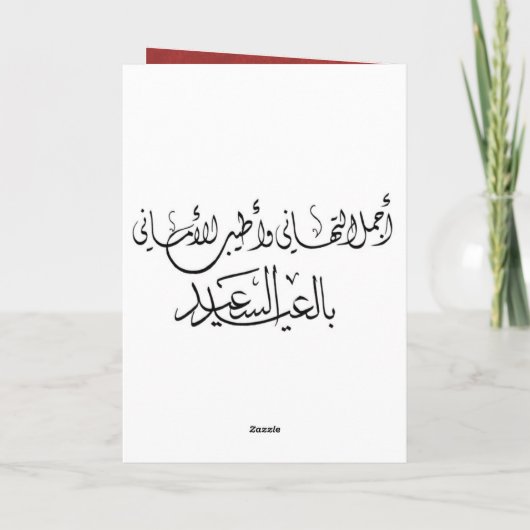 أجمل التهاني وأطيب الأماني
بالعيد السعيد
Zazzle